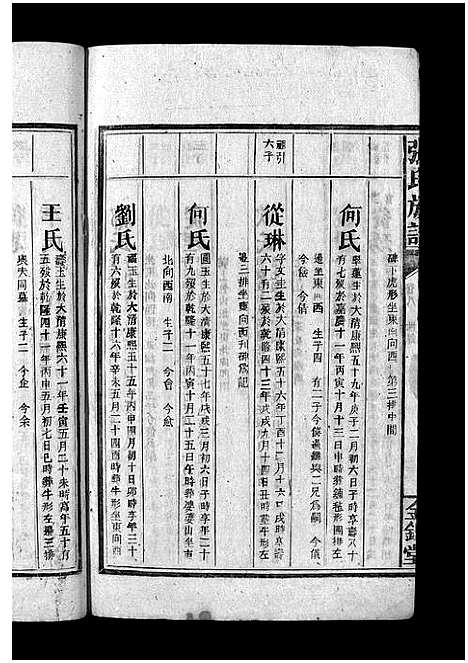 張氏族譜
金鑑堂
碑下虎形坐東向西 第三排中間
何氏
生於大清康熙五十九年庚子二月初六日子時享壽八十
有七歿於嘉慶十一年丙寅十月十三日申時葬 形圍排左
邊坐東向西 生子四 有二子今 與二兄為嗣 今儀
今 今僖
從琳
六子
字文玉生於大清康熙五十六年丁酉十二月十六日戌時享壽
六十有二歿於乾隆四十三年戊戌九月十四日丑時葬牛形左
邊三排坐東向西刋碑為記
何氏
生於大清康熙五十七年戊戌三月初六日子時享年二十
有九歿於乾隆十一年丙寅十月二十五日午時葬 山坐東
北向西南 生子二 今會 今愈
劉氏
生於大清康熙五十五年丙申十月初十日卯時享年三十
有六歿於乾隆十六年辛未五月二十四酉時葬牛形左坐東向西
王氏
生於大清康熙六十一年壬寅五月二十未時為年五十有
五歿於乾隆四十一年丙申五月初七日巳時葬牛形左邊三排
與夫同墓 生子二 今企 今余